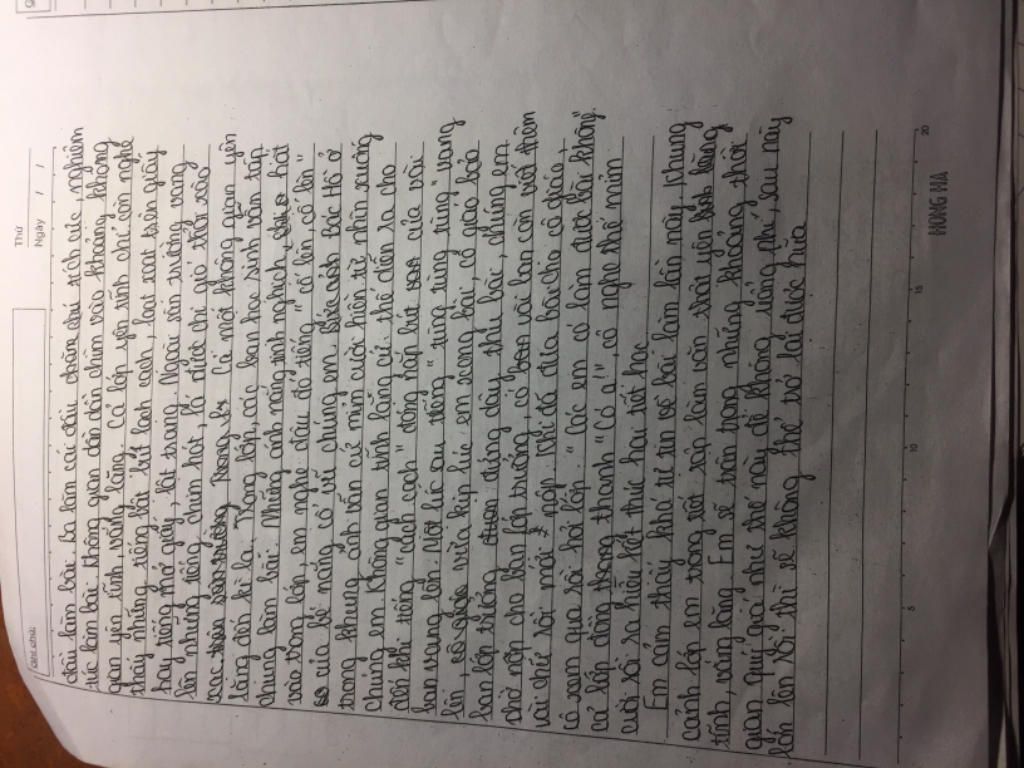 Thứ
Ngày / /
Điểm chú:
đãi làm bài. Ba làm cái đầu chăm chú tích cực, nghiêm
túc làm bài. Không gian dần dần chìm vào khoảng không
gian yên tĩnh vắng lặng. Cả lớp yên tĩnh chỉ còn nghe
thấy những tiếng bút bút lách cách, loạt xoạt trên giấy
hay tiếng mở giấy, lật trang. Ngoài sân trường vang
lên những tiếng chim hót, lá rước chị gió thổi xào
xạc trên sân trường Trong lớ Cả một không gian yên
lặng đến kì lạ. Trong lớp, các bạn học sinh vẫn tập
chung làm bài. Những ánh nắng tinh nghịch, chiế hắt
vào trong lớp, em nghe đâu đó tiếng "cố lên, cố lên"
của bé nắng cổ vũ chúng em. Bức ảnh Bác Hồ ở
trong khung ảnh vẫn cứ mỉm cười hiền từ nhìn xuống
chúng em. Không gian tĩnh lặng cứ thế diễn ra cho
đến khi tiếng "cách cạch" đóng nắp bút của vài
bạn vang lên. Một lúc sau tiếng "tùng tùng tùng" vang
lên, cô giáo vừa kịp lúc em xong bài, cô giáo bảo
ban lớp trưởng đứng dậy thu bài, chúng em
chờ nộp cho bạn lớp trưởng, có vài bạn còn viết thêm
vài chữ rồi mới nộp. Khi đã đưa bài cho cô giáo,
cô xem qua rồi hỏi lớp: "Các em có làm được bài không"
cả lớp đồng thanh "Có ạ", cô nghe thế mỉm
cười rồi ra hiệu kết thúc hai tiết học.
Em cảm thấy khá tự tin về bài làm lần này, khung
cảnh lớp em trong tiết tập làm văn thật yên
tĩnh, vắng lặng. Em sẽ trân trọng những khoảng thời
gian quý giá như thế này để không lãng phí, sau này
lớn lên rồi thì sẽ không thể trở lại được nữa
5 10 15 20
HONG HA